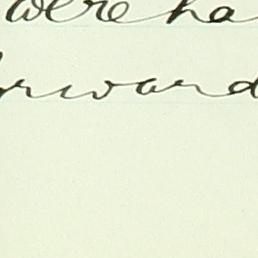 were ha
rward